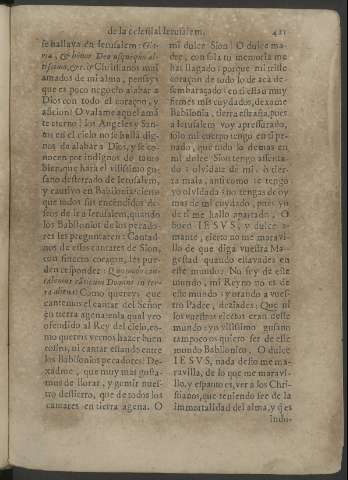 de la celestial Ierusalem. 421
se hallava en Ierusalem: Glo-
ria, & honor Deo usquequo al-
tissimo, &c. Christianos muy
amados de mi alma, pensays
que es poco negocio alabar a
Dios con todo el coraçon, y
aficion! O valame aquel ama
te eterno! los Angeles y San-
tos en el cielo no se hallã dig-
nos de alabar a Dios, y se co-
nocen por indignos de tanto
bien, que hara el vilissimo gu-
sano desterrado de Ierusalem,
y cautivo en Babilonia: siento
que todos sus encendidos de-
seos de ir a Ierusalem, quando
los Babilonios de los pecado-
res les preguntaren: Cantad-
nos de essos cantares de Sion,
con sincero coraçon, les pue-
den responder: Quomodo can-
tabimus cãticum Domini in ter-
ra aliena: Como quereys que
cantemos el cantar del Señor
en tierra agena: en la qual veo
ofendido al Rey del cielo,
como quereys vernos hazer buen
rostro, ni cantar estando entre
los Babilonios pecadores: De-
xadme, que muy mas gusta-
mos de llorar, y gemir nues-
tro destierro, que de todos los
cantares en tierra agena. O
mi dulce Sion! O dulce ma-
dre, con sola tu memoria me
has llagado: porque mi triste
coraçon de todo lo de acà de-
sembaraçado: en ti estan muy
firmes mis cuydados, dexome
Babilonia, tierra estraña, pues
a Ierusalem voy apressurado,
solo mi cuerpo tengo en ti pe-
nado, que todo lo demas en
mi dulce Sion tengo assenta-
do: olvidate de mi, ò tier-
ra mala, ansi como te tengo
yo olvidada: no tengas de oy
mas de mi cuydado, pues yo
de ti me hallo apartado. O
buen IESVS, y dulce a-
mante, cierto no me maravi-
llo de que diga vuestra Ma-
gestad quando estavades en
este mundo: No soy de este
mundo, mi Reyno no es de
este mundo: y orando a vues-
tro Padre, dezides: Que ni
los vuestros electos eran deste
mundo: yo vilissimo gusano
tampoco quiero ser de este
mundo Babilonico. O dulce
IESVS, nada desso me ma-
ravilla, de lo que me maravi-
llo, y espanto es, ver a los Chri-
stianos, que teniendo fee de la
immortalidad del alma, y q̃ es
indu-